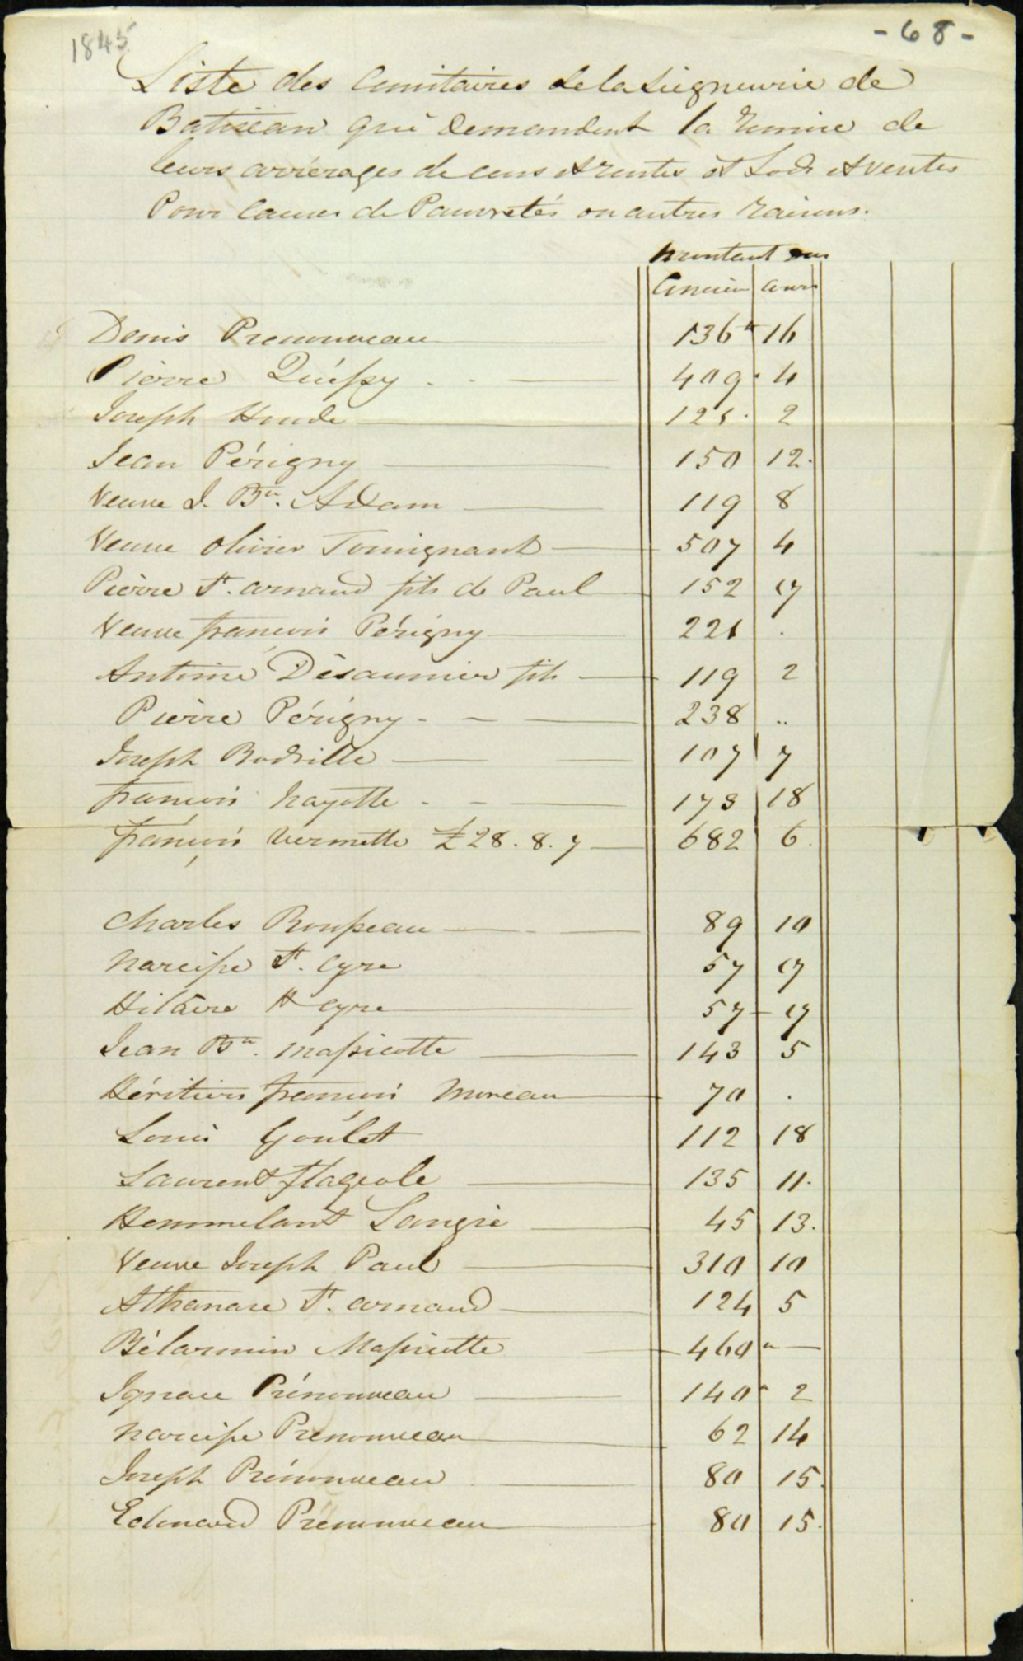 1845
- 68 -
Liste des Censitaires de la Seigneurie de
Batiscan qui Demandent la remise de
leurs arriérages de cens et rentes et Lods et ventes
Pour Causes de Pauvretés ou autres raisons.
montant
Ancien Cours
Denis Prenouveau 136 16
Pierre Quéssy 409 4
Joseph Houde 121 2
Jean Périgny 150 12
Veuve J. Bte. Adam 119 8
Veuve Olivier 507 4
Pierre St. arnaud fils de Paul 152 17
Veuve françois Périgny 221 .
Antoine Désaunier fils 119 2
Pierre Périgny 238 ..
Joseph 107 7
françois hayotte 173 18
françois Vermette £ 28. 8. 7 682 6
Charles Rousseau 89 10
Narcisse St. Cyre 57 17
Hilaire St Cyre 57 17
Jean Bte. Massicotte 143 5
Héritiers françois Moreau 70 .
Louis Goulet 112 18
Laurent flageole 135 11.
Langie 45 13.
Veuve Joseph Paul 310 10
Athanase St. arnaud 124 5
Bélarmin Massicotte 460 " —
Ignace Prénouveau 140 2
Narcisse Prenouveau 62 14
Joseph Prénouveau 80 15.
Edouard Prénouveau 80 15.